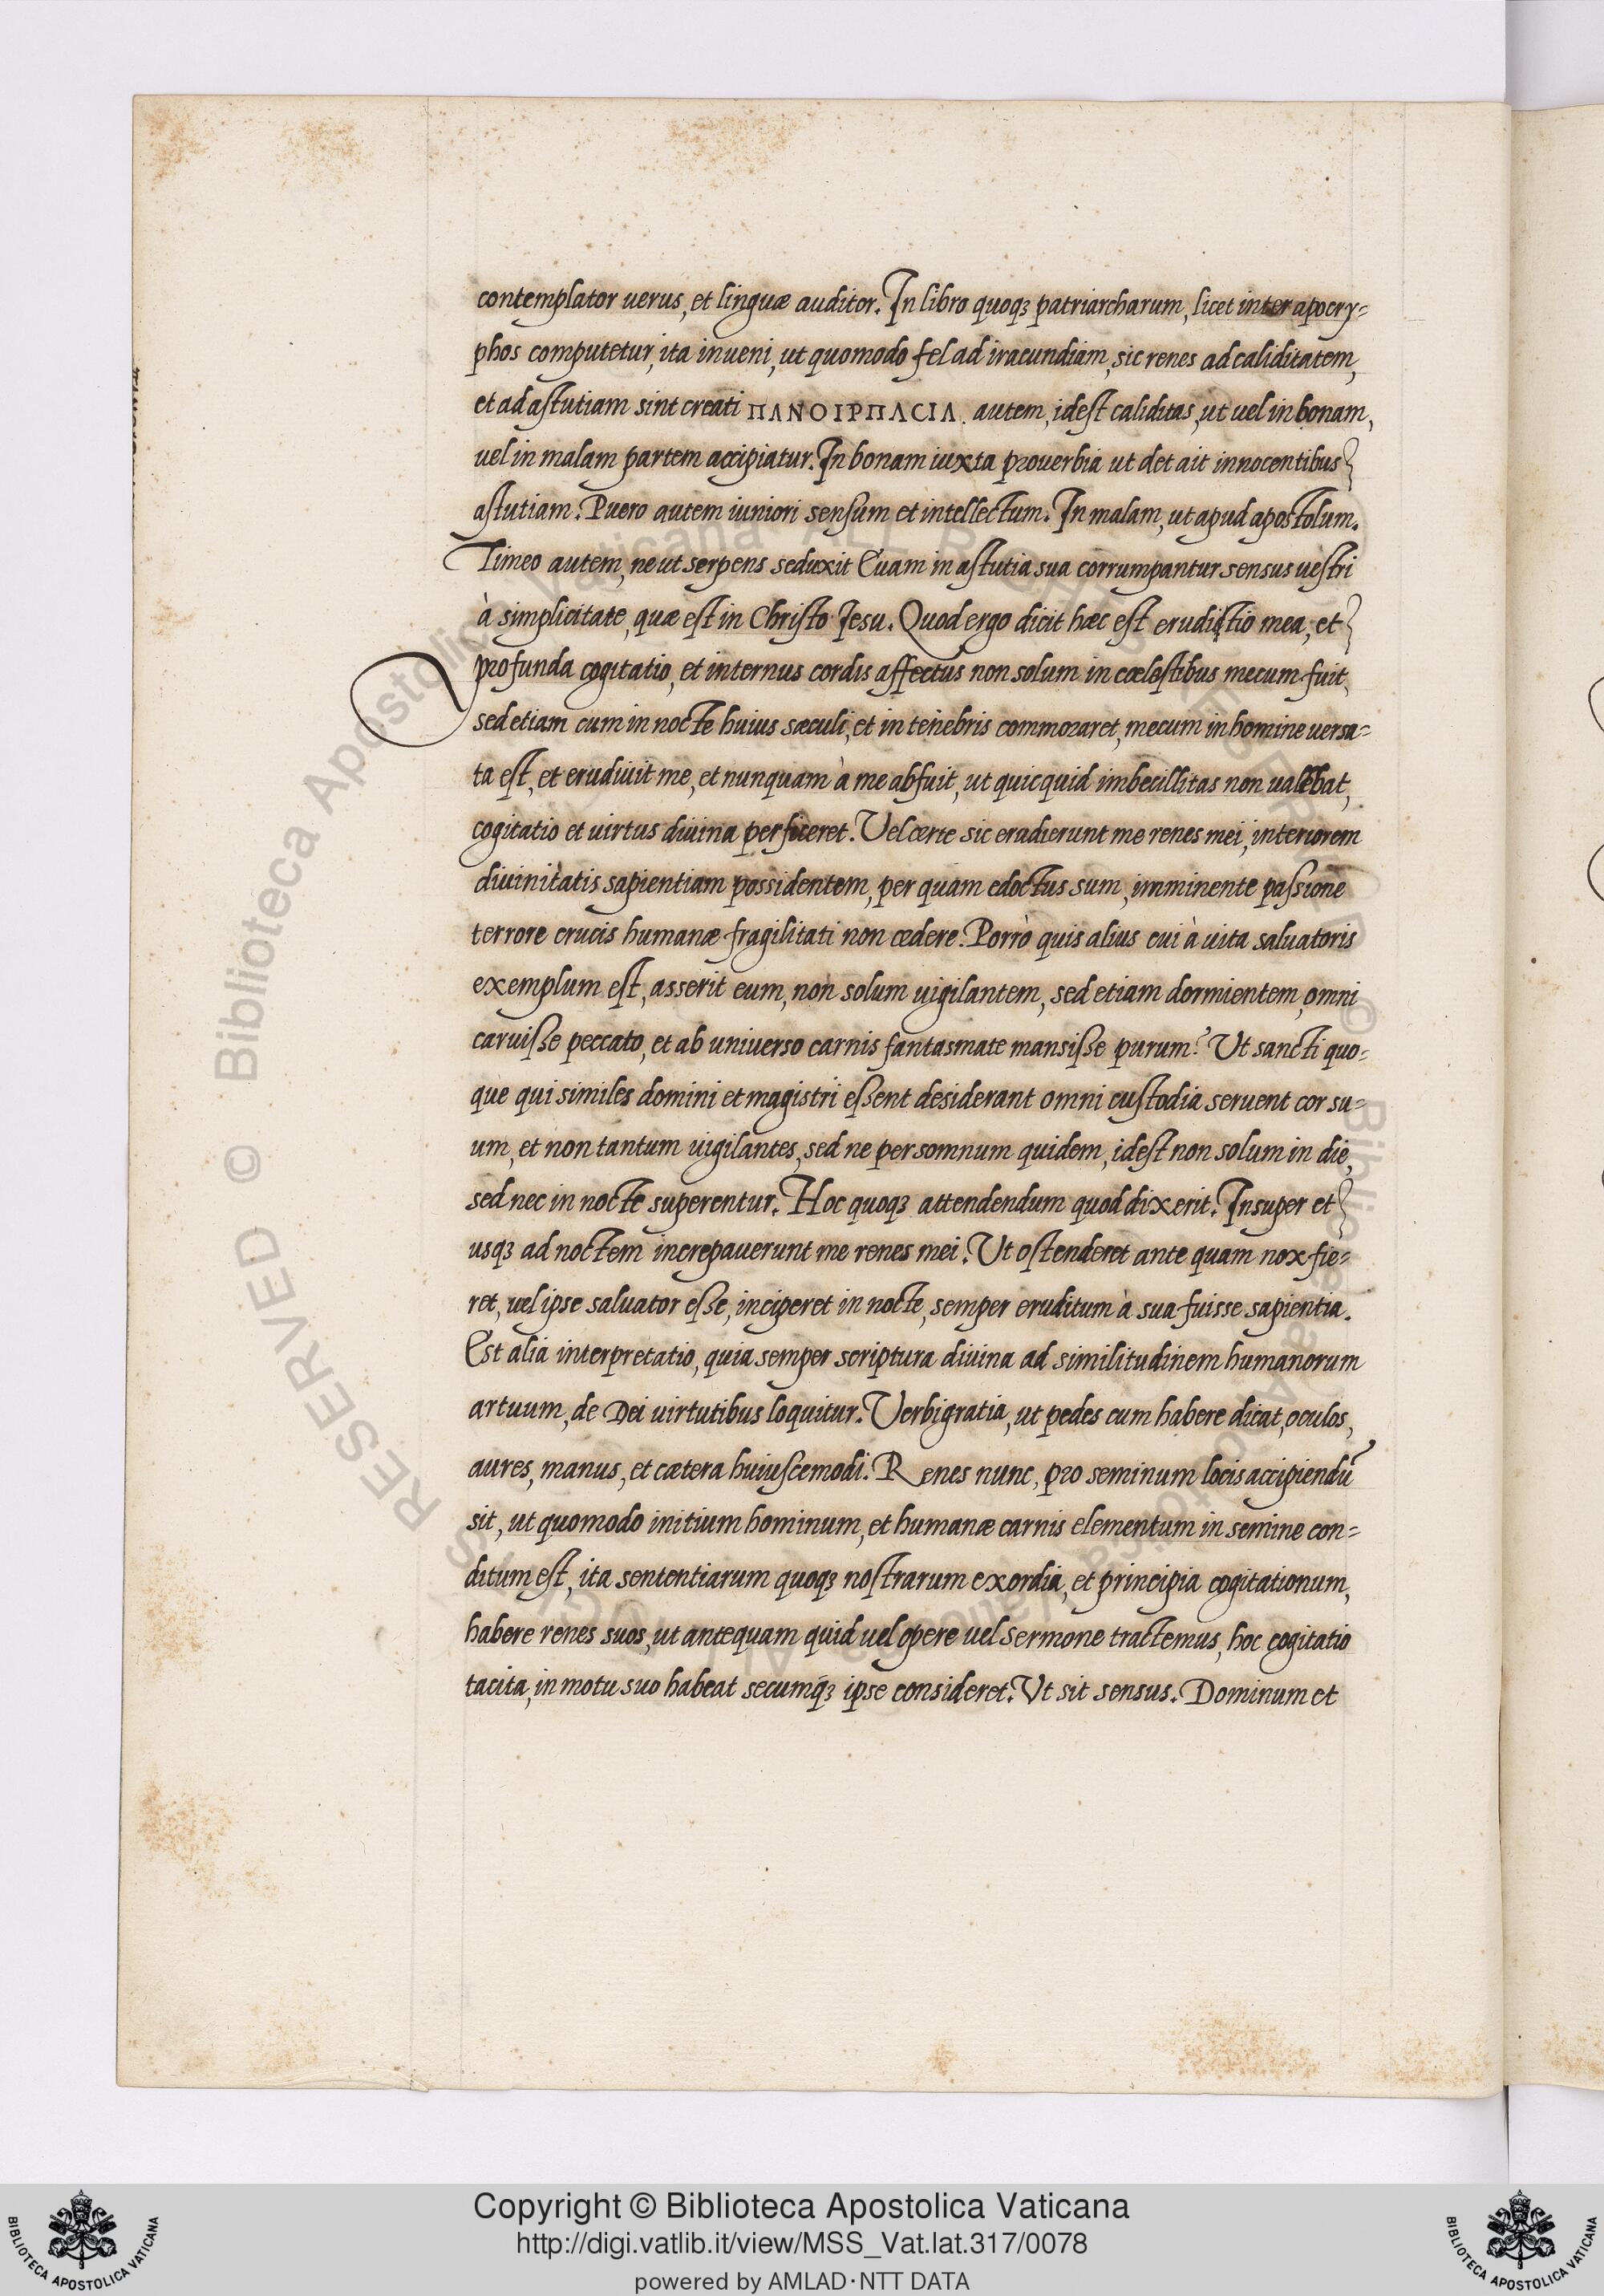 contemplator uerus, et linguæ auditor. In libro quoqꝫ patriarcharum, licet inter apocry=
phos computetur, ita inueni, ut quomodo fel ad iracundiam, sic renes ad caliditatem,
et ad astutiam sint creati ΠΛΝΟΙΡΠΛCΙΛ. autem, idest caliditas, ut uel in bonam,
uel in malam partem accipiatur. In bonam iuxta prouerbia ut det ait innocentibus
astutiam. Puero autem iuniori sensum et intellectum. In malam, ut apud apostolum.
Timeo autem, ne ut serpens seduxit Euam in astutia sua corrumpantur sensus uestri
à simplicitate, quæ est in Christo Jesu. Quod ergo dicit hæc est erudictio mea, et
profunda cogitatio, et internus cordis affectus non solum in cœlestibus mecum fuit,
sed etiam cum in nocte huius sæculi, et in tenebris commoraret, mecum in homine uersa=
ta est, et erudiuit me, et nunquam à me abfuit, ut quicquid imbecillitas non ualebat,
cogitatio et uirtus diuina perficeret. Vel certe sic eradierunt me renes mei, interiorem
diuinitatis sapientiam possidentem, per quam edoctus sum, imminente passione
terrore crucis humanæ fragilitati non cedere. Porrò quis alius cui à uita saluatoris
exemplum est, asserit eum, non solum uigilantem, sed etiam dormientem, omni
caruisse peccato, et ab uniuerso carnis fantasmate mansisse purum? Ut sancti quo=
que qui similes domini et magistri essent desiderant omni custodia seruent cor su=
um, et non tantum uigilantes, sed ne per somnum quidem, idest non solum in die,
sed nec in nocte superentur. Hoc quoqꝫ attendendum quod dixerit. Insuper et
usqꝫ ad noctem increpauerunt me renes mei. Ut ostenderet ante quam nox fie=
ret, uel ipse saluator esse, inciperet in nocte, semper eruditum à sua fuisse sapientia.
Est alia interpretatio, quia semper scriptura diuina ad similitudinem humanorum
artuum, de Dei uirtutibus loquitur. Verbigratia, ut pedes eum habere dicat, oculos,
aures, manus, et cætera huiuscemodi. Renes nunc, pro seminum locis accipiendū
sit, ut quomodo initium hominum, et humanæ carnis elementum in semine con=
ditum est, ita sententiarum quoqꝫ nostrarum exordia, et principia cogitationum,
habere renes suos, ut antequam quid uel opere uel sermone tractemus, hoc cogitatio
tacita, in motu suo habeat secumq́ꝫ ipse consideret. Vt sit sensus. Dominum et
© Biblioteca Apostolica Vaticana ALL RIGHTS RESERVED
Copyright © Biblioteca Apostolica Vaticana
http://digi.vatlib.it/view/MSS_Vat.lat.317/0078
powered by AMLAD·NTT DATA
BIBLIOTECA APOSTOLICA VATICANA
BIBLIOTECA APOSTOLICA VATICANA